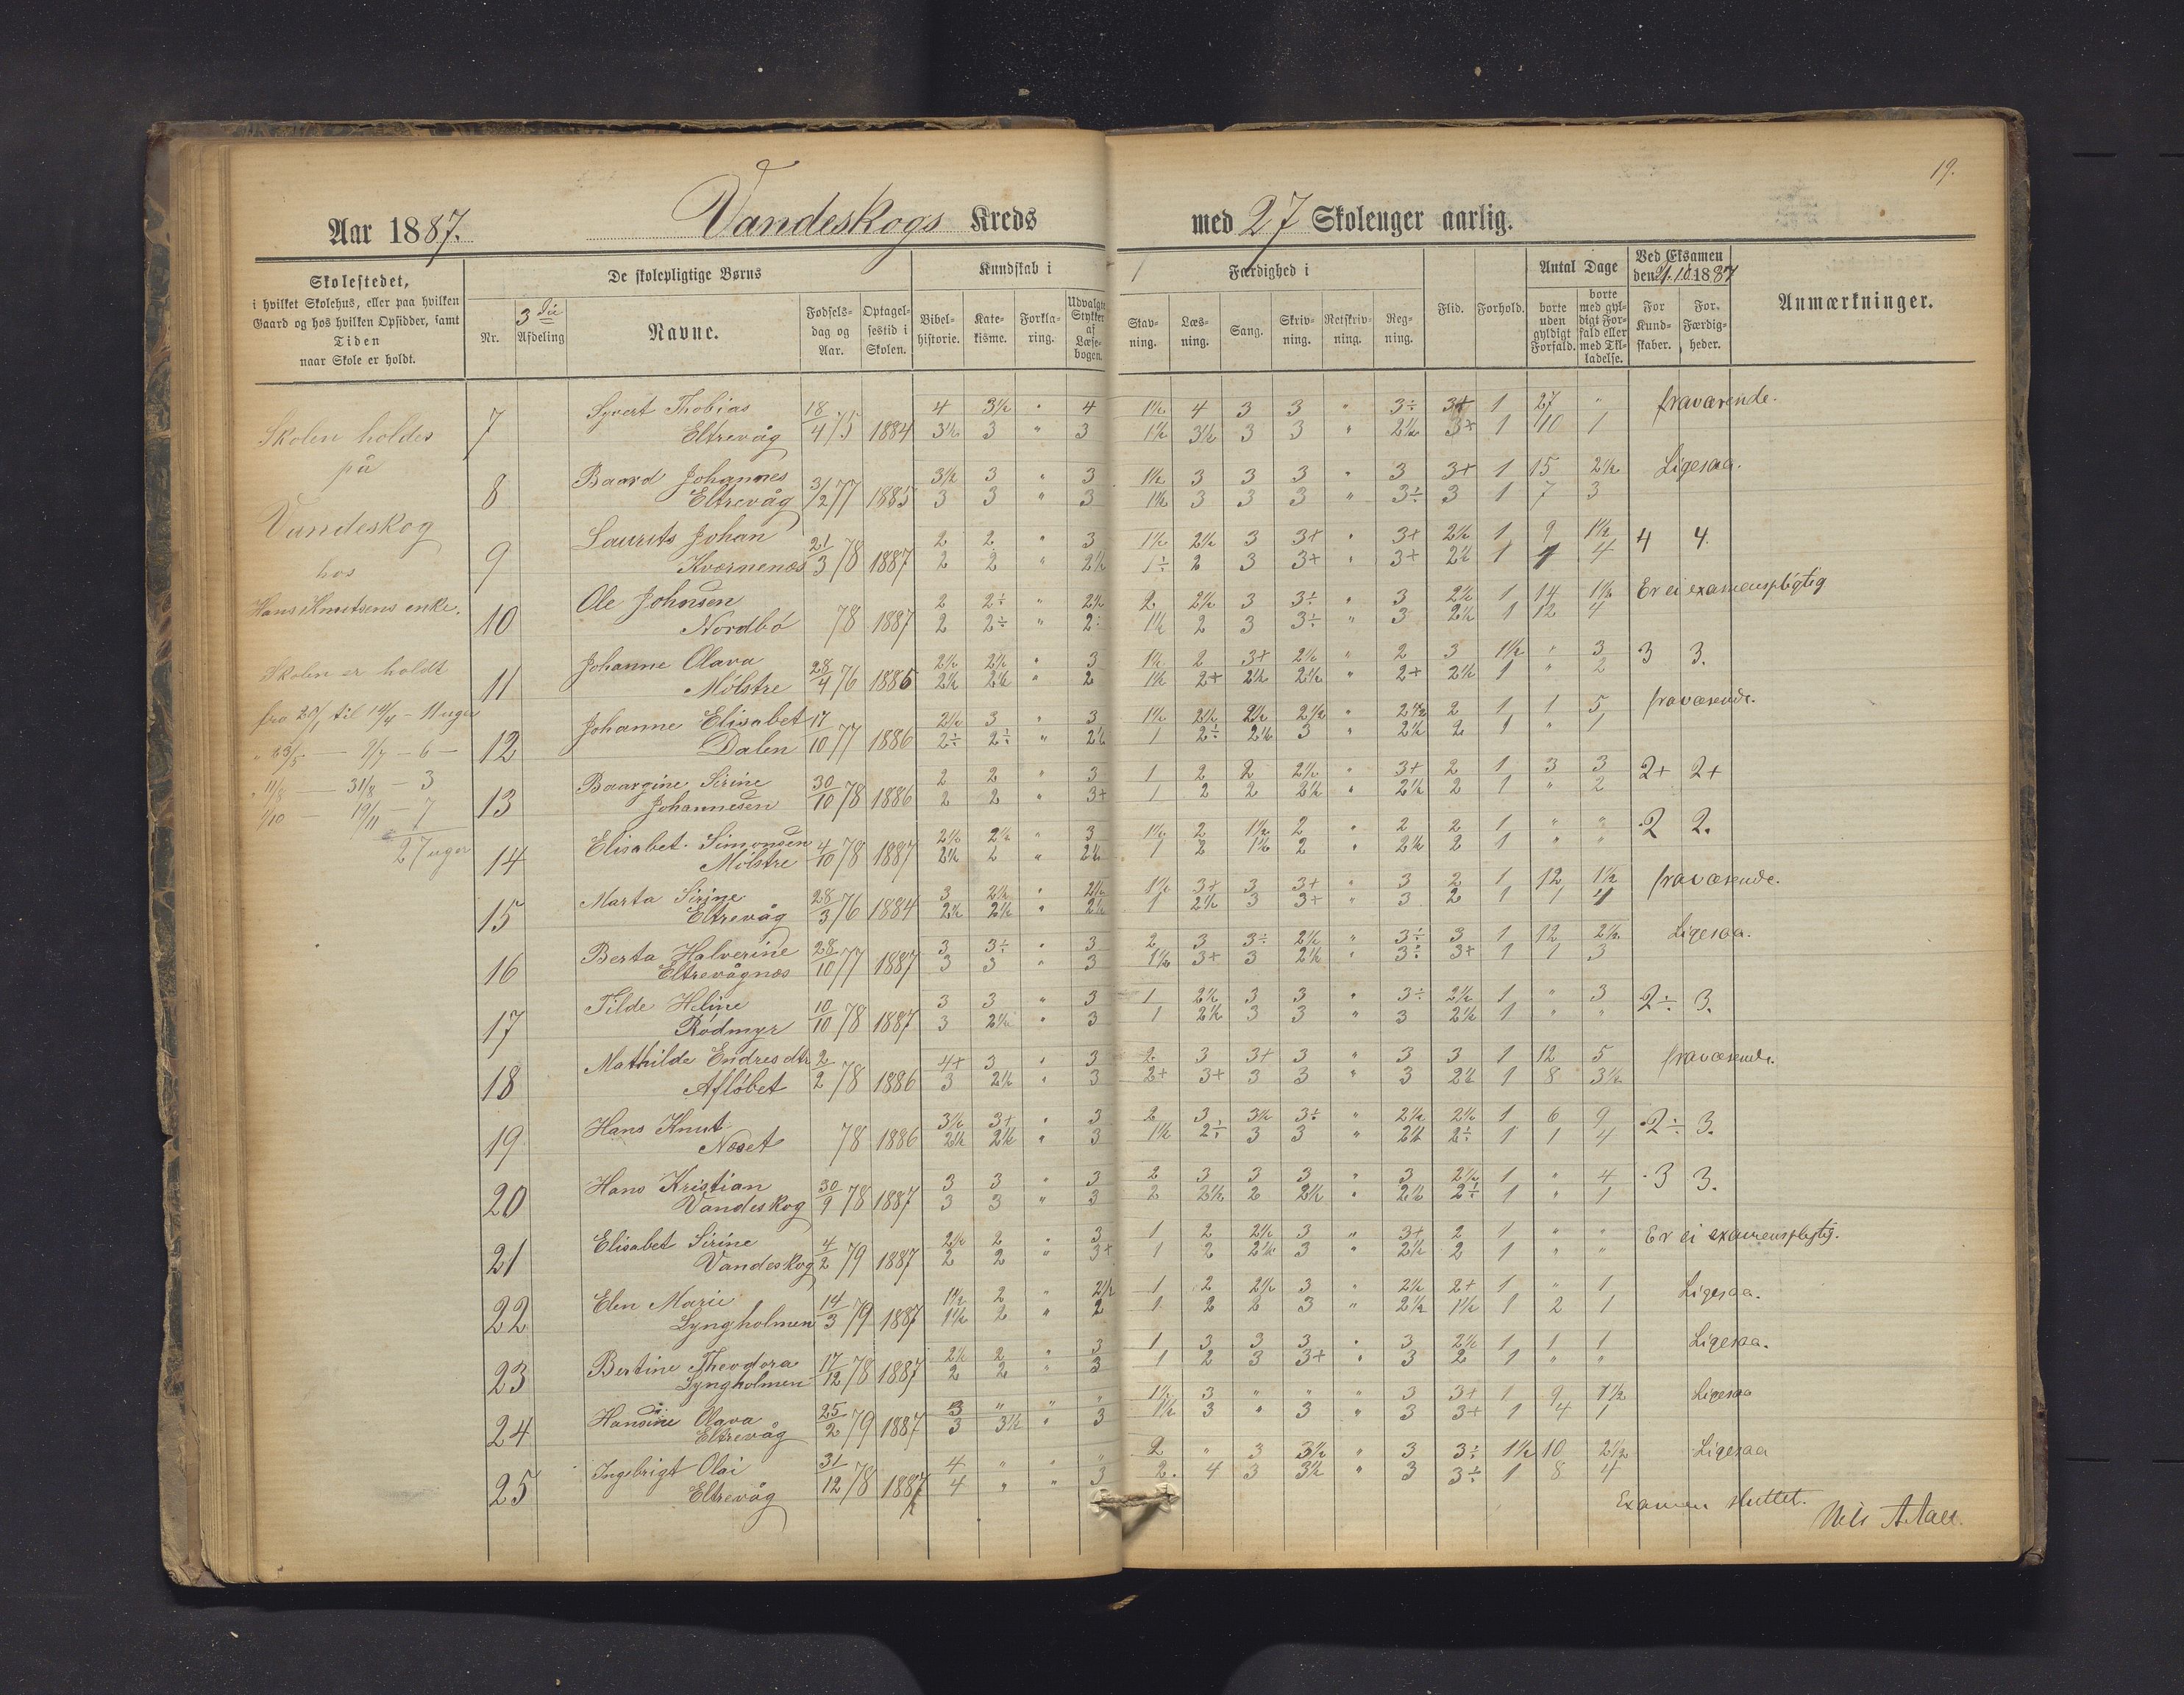 19.
Aar 1887. Vandeskogs Kreds med 27 Skoleuger aarlig.
Skolestedet,
i hvilket Skolehus, eller paa hvilken
Gaard og hos hvilken Opsidder, samt
Tiden
naar Skole er holdt.
De skolepligtige Børns
Nr.
3die
Afdeling
Navne.
Fødsels-
dag og
Aar.
Optagel-
sestid i
Skolen.
Kundskab i
Bibel-
historie.
Kate-
kisme.
Forkla-
ring.
Udvalgte
Stykker
af
Læse-
bogen.
Færdighed i
Stav-
ning.
Læs-
ning.
Sang.
Skriv-
ning.
Retskriv-
ning.
Reg-
ning.
Flid.
Forhold.
Antal Dage
borte
uden
gyldigt
Forfald.
borte
med gyl-
digt For-
fald eller
med Til-
ladelse.
Ved Eksamen
1887
For
Kund-
skaber.
For
Færdig-
heder.
Anmærkninger.
Skolen holdes
på
Vandeskog
hos
Hans Knutsens enke.
Skolen er holdt
fra 20/1 til 14/4 - 11 uger
" 23/5 — 2/7 — 6 —
" 11/8 — 31/8 — 3
1/10 — 19/11 — 7
27 uger
7 Syvert Thobias 18 4 3½ " 4 1½ 4 3 3 " 3÷ 3+ 1 27 " fraværende.
Eltrevåg 4/75 1884 3½ 3 " 3 1½ 3½ 3 3 " 2½ 3+ 1 40 1
8 Baard Johannes 3½ 3 " 3 1½ 3 3 3 " 3 3+ 1 15 2½ Ligesaa.
Eltrevåg 3/2 77 1885 3 3 " 3 1½ 3 3 3 " 3÷ 3 1 7 3
9 Laurits Johan 21 2 2 " 3 1½ 2½ 3 3+ " 3+ 2½ 1 9 1½ 4 4.
Kværnenæs 3/78 1887 2 2 " 2½ 1÷ 2 3 3+ " 3+ 2½ 1 1 4
10 Ole Johnsen 2 2÷ " 2½ 2 2½ 3 3÷ " 3 2½ 1 14 1½ Er ei examenspligtig
Nordbø 78 1887 2 2÷ " 2÷ 1½ 2 3 3÷ " 3 2½ 1 12 4
11 Johanne Olava 28 2½ 2½ " 3 1½ 2 3+ 2½ " 2 3 1½ " 3 3 3.
Mølstre 4/76 1885 2½ 2½ " 2 1½ 2+ 2½ 2½ " 2+ 2½ 1 " 2
12 Johanne Elisabet 17 2½ 3 " 3 1½ 2½ 2½ 2½ " 2½ 2 1 1 5 fraværende.
Dalen 10/77 1886 2÷ 2÷ " 2½ 1 2÷ 2½ 3 " 2½ 2 1 " 1
13 Baargine Sirine 30 2 2 " 3 1 2 2 2½ " 3+ 2 1 3 3 2+ 2+
Johannesen 10/78 1886 2 2 " 3+ 1 2 2 2½ " 2½ 2 1 " 2
14 Elisabet Simonsen 4 2½ 2½ " 3 1½ 2 1½ 2 " 2 2 1 " " 2 2.
Mølstre 10/78 1887 2½ 2 " 2½ 1 2 1½ 2 " 2½ 2 1 " "
15 Marta Sirine 28 3 2½ " 2½ 1½ 3+ 3 3+ " 3 2 1 12 1½ fraværende.
Eltrevåg 3/76 1884 2½ 2½ " 2½ 1 2½ 3 3+ " 3 2 1 1 4
16 Berta Halverine 28 3 3÷ " 3 2 3 3÷ 2½ " 3÷ 3 1 12 2½ Ligesaa.
Eltrevågnæs 10/77 1887 3 3 " 3 1½ 3+ 3 2½ " 3÷ 3+ 1 1 3
17 Tilde Heline 10 3 3 " 3 1 2½ 3 3 " 3÷ 2½ 1 " 3 2÷ 3.
Rødmyr 10/78 1887 3 2½ " 3 1 2½ 3 3 " 3 2½ 1 " "
18 Mathilde Endresdtr 2 4+ 3 " 3 2 3 3+ 3 " 3 3 1 12 5 fraværende.
Afløbet 2/78 1886 3 2½ " 3 2+ 3+ 3 3 " 3 2½ 1 8 3½
19 Hans Knut 3½ 3+ " 3 2 3 3½ 3÷ " 2½ 2½ 1 6 9 2÷ 3.
Næset 78 1886 2½ 2½ " 3 1½ 2÷ 3 3 " 2½ 2÷ 1 1 4
20 Hans Kristian 30 3 3 " 3 2 3 3 3 " 3 2½ 1 " 4 3 3.
Vandeskog 9/78 1887 3 3 " 3 2 2½ 2 2½ " 2½ 2÷ 1 " 1
21 Elisabet Sirine 4 2½ 2 " 3 1 2 2½ 3 " 3+ 2 1 " " Er ei examenspligtig.
Vandeskog 2/79 1887 2 2 " 3+ 1 2 2½ 3 " 2½ 2 1 " "
22 Elen Marie 14 1½ 2 " 2½ 1 2 2½ 3 " 2½ 2+ 1 " 1 Ligesaa.
Lyngholmen 3/79 1887 1½ 2 " 2 1 2 2 3 " 2½ 1½ 1 2 1
23 Bertine Theodora 17 2½ 2 " 3 1 3 3 3 " 3 2½ 1 1 1 Ligesaa.
Lyngholmen 12/78 1887 2 2 " 3 1 2 3 3+ " 3 2 1 " "
24 Hansine Olava 25 3 " " " 1½ 3 " " " 3 3+ 1 9 1½ Ligesaa
Eltrevåg 2/79 1887 3 3½ " 3 1½ 3 " 3 " 3 3+ 1 4 1
25 Ingebrigt Olai 31 4 " " " 2 " 3 3½ " 3 3÷ 1½ 10 2½ Ligesaa
Eltrevåg 12/78 1887 4 " " 3 2. 4 3 3½ " 3 3÷ 1 8 4
Examen sluttet.
Nils